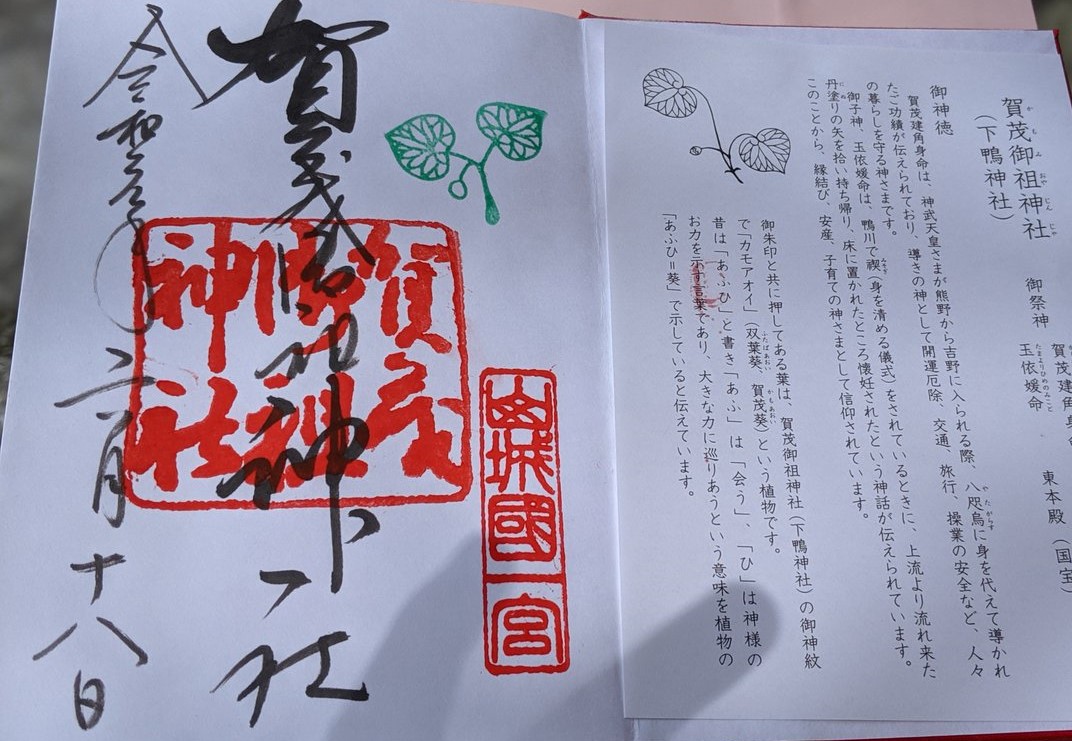 賀茂御祖神社
（下鴨神社）
御祭神
賀茂建角身
玉依媛命
たまよりひめのみこと
東本殿（国宝）
御神徳
賀茂建角身命は、神武天皇さまが熊野から吉野に入られる際、八咫烏に身を代えて導かれ
やたがらす
たご功績が伝えられており、導きの神として開運厄除、交通、旅行、操業の安全など、人々
の暮らしを守る神さまです。
御子神、玉依媛命は、鴨川で禊（身を清める儀式）をされているときに、上流より流れ来た
みそぎ
丹塗りの矢を拾い持ち帰り、床に置かれたところ懐妊されたという神話が伝えられています。
にぬ
このことから、縁結び、安産、子育ての神さまとして信仰されています。
御朱印と共に押してある葉は、賀茂御祖神社（下鴨神社）の御神紋
で「カモアオイ」（双葉葵、賀茂葵）という植物です。
ふたばあおい
かもあおい
昔は「あふひ」と書き「あふ」は「会う」、「ひ」は神様の
お力を示す言葉であり、大きな力に巡りあうという意味を植物の
「あふひ＝葵」で示していると伝えています。
山城國一宮
賀茂御祖神社
賀茂御祖神社
令和
月十八日